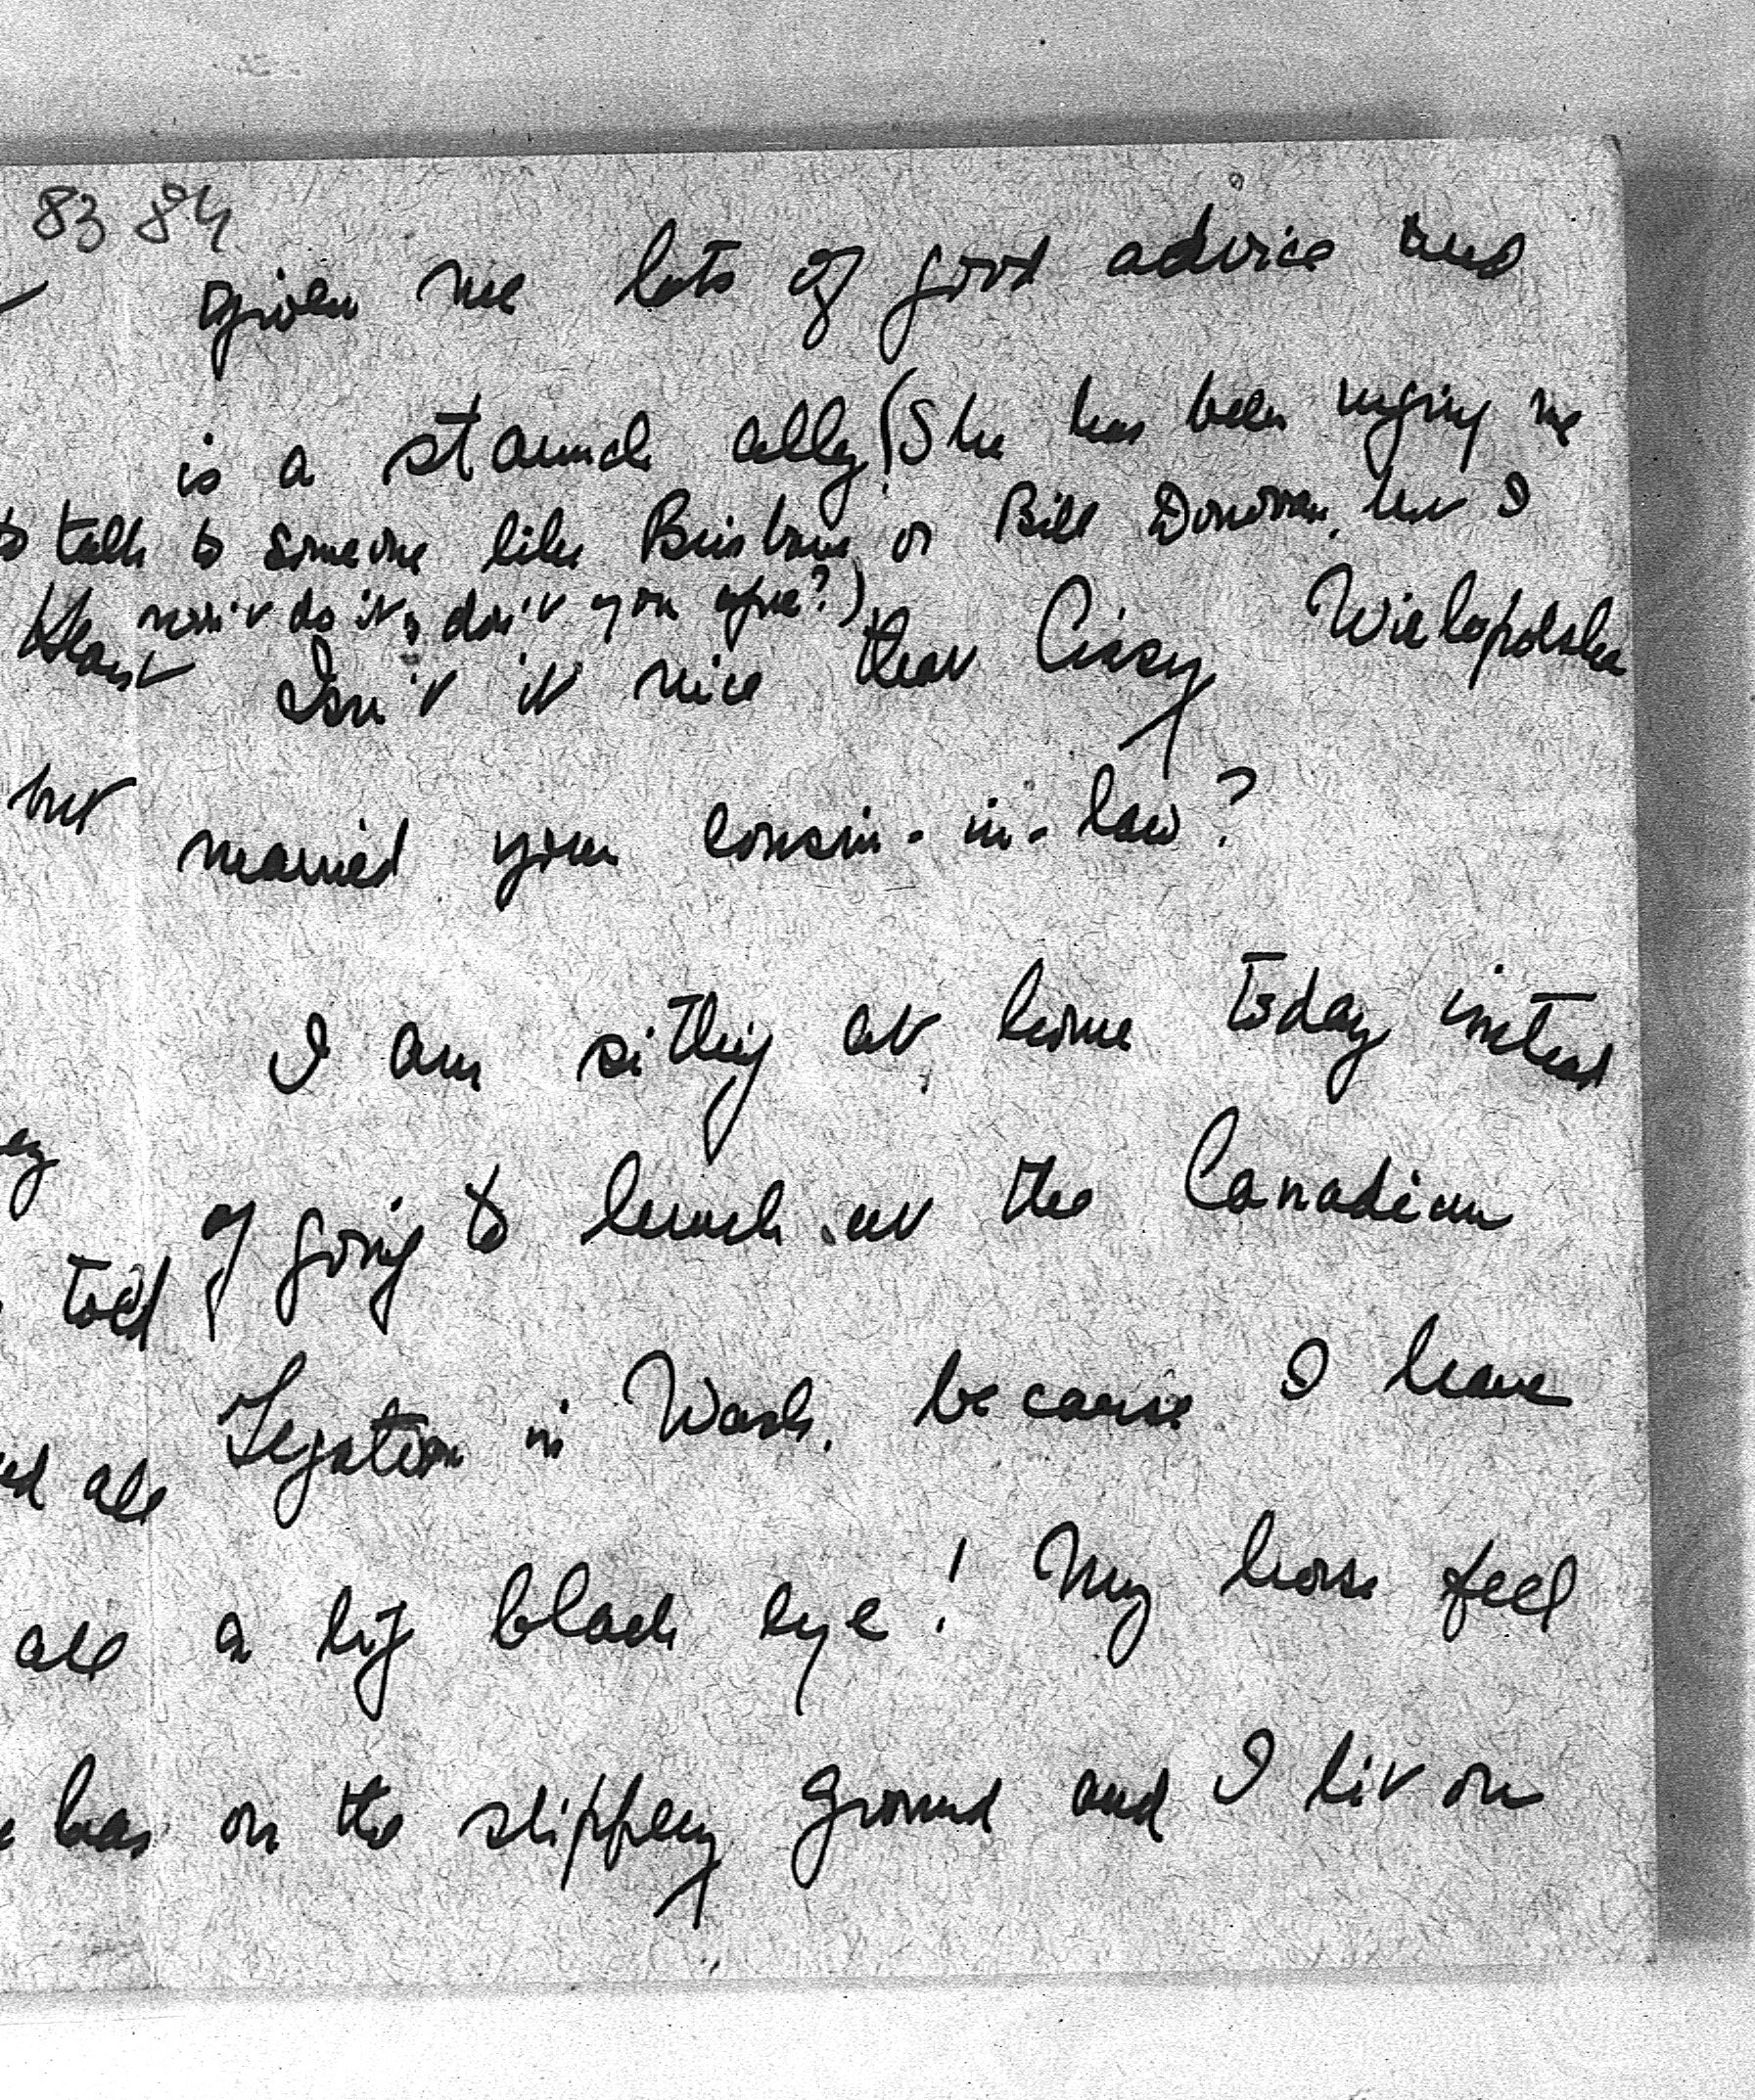 83 84
given me lots of good advice and
is a staunch ally (She has been urging me
to talk to someone like Brisbane or Bill Donovan, but I
won't do it, don't you agree?)
Hearst Isn't it nice that Cissy Wielopolska
but married your cousin-in-law?
I am sitting at home today instead
told of going to lunch at the Canadian
Legation in Wash. because I have
all
all a big black eye! My horse fell
has on the slippery ground and I lit on